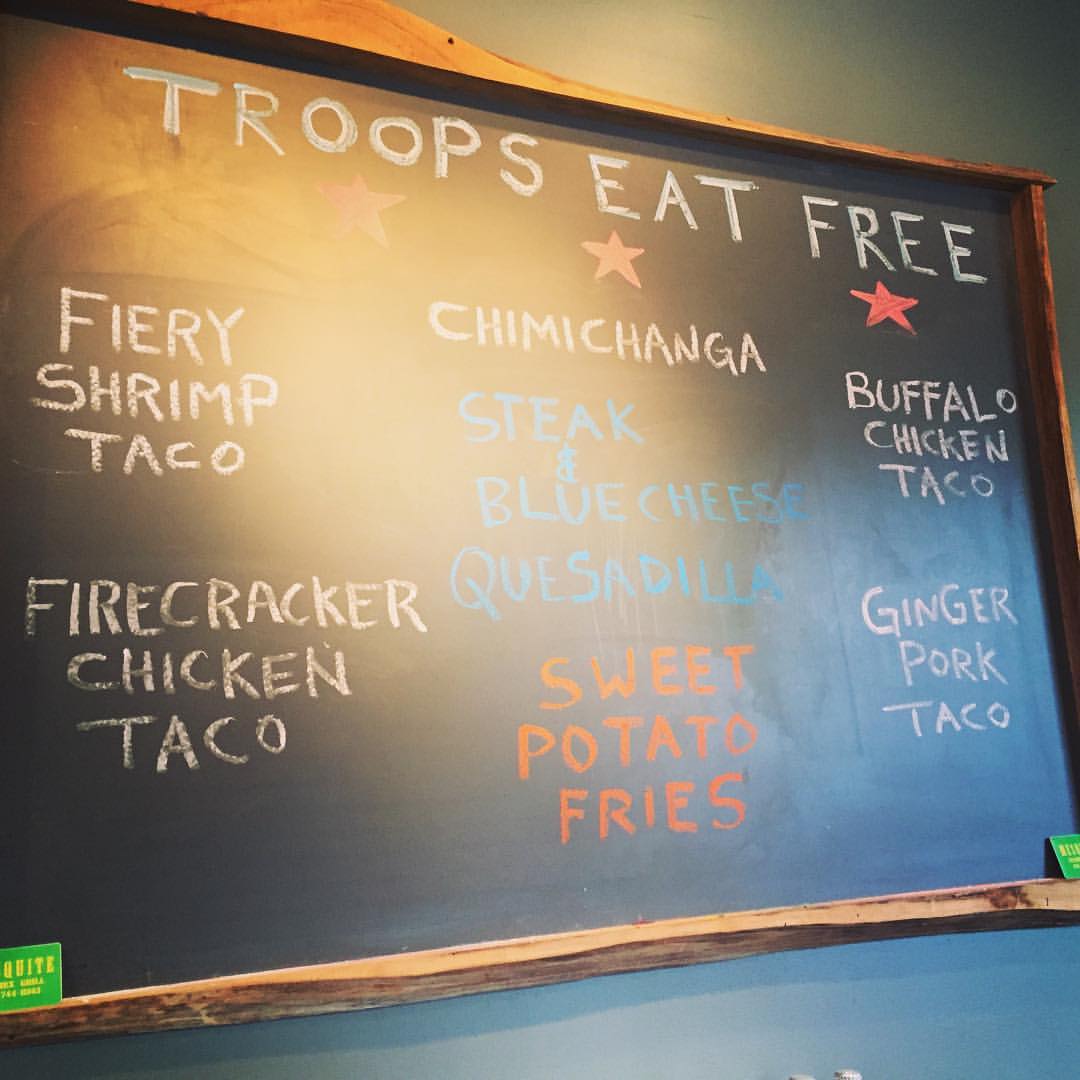 TROOPS EAT FREE
FIERY
SHRIMP
TACO
FIRECRACKER
CHICKEN
TACO
CHIMICHANGA
STEAK
&
BLUE CHEESE
QUESADILLA
SWEET
POTATO
FRIES
BUFFALO
CHICKEN
TACO
GINGER
PORK
TACO
QUITE
GRILL